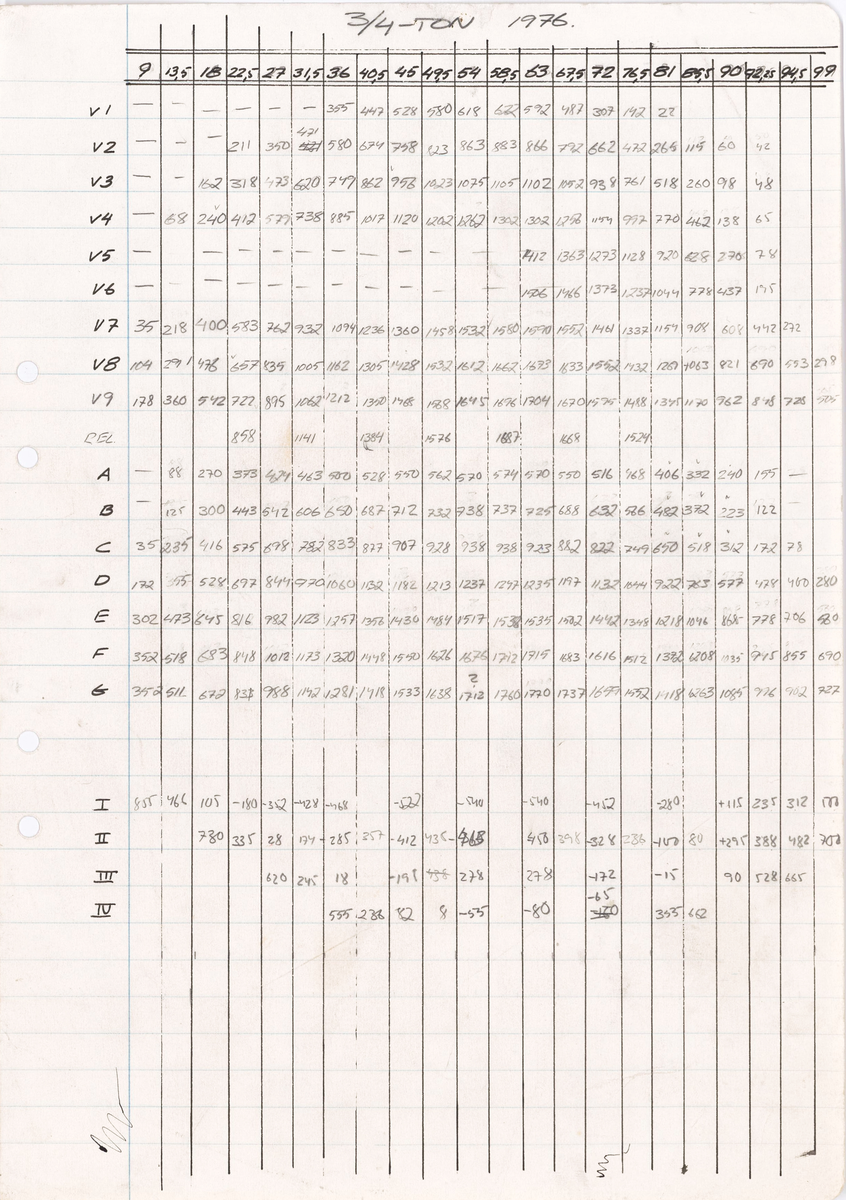 3/4-TON 1976.
9 13,5 18 22,5 27 31,5 36 40,5 45 49,5 54 58,5 63 67,5 72 76,5 81 85,5 90 92,25 94,5 99
V1 — — — — — — 355 447 528 580 618 622 592 487 307 142 22
471
V2 — — — 211 350 580 674 758 823 863 883 866 792 662 472 265 115 60 42
V3 — — 162 318 473 620 749 862 956 1023 1075 1105 1102 1052 938 761 518 260 98 48
V4 — 68 240 412 579 738 885 1017 1120 1202 1262 1302 1302 1256 1154 997 770 462 138 65
V5 — — — — — — — — — — — — 1412 1363 1273 1128 920 628 270 78
V6 — — — — — — — — — — — — 1506 1466 1373 1237 1044 778 437 195
V7 35 218 400 583 762 932 1094 1236 1360 1458 1532 1580 1590 1552 1461 1337 1154 908 608 442 272
V8 104 291 476 657 835 1005 1162 1305 1428 1532 1612 1662 1673 1633 1552 1432 1269 1063 821 690 553 298
V9 178 360 542 722 895 1062 1212 1350 1468 1568 1645 1696 1704 1670 1595 1488 1345 1170 962 848 728 505
REL 858 1141 1384 1576 1687 1668 1524
A — 88 270 373 424 463 500 528 550 562 570 574 570 550 516 468 406 332 240 155 —
B — 125 300 443 542 606 650 687 712 732 738 737 725 688 632 566 482 372 223 122
C 35 235 416 575 698 782 833 877 907 928 938 938 923 882 822 749 650 518 312 172 78
D 172 528 697 844 970 1060 1132 1182 1213 1237 1247 1235 1197 1132 1044 922 763 577 478 400 280
E 302 473 645 816 982 1123 1257 1356 1430 1484 1517 1538 1535 1502 1442 1348 1218 1046 868 778 706 580
F 352 518 683 848 1012 1173 1320 1448 1550 1626 1676 1712 1715 1683 1616 1512 1382 1208 1035 945 855 690
?
G 352 511 672 831 988 1142 1281 1418 1533 1638 1712 1760 1770 1737 1659 1552 1418 1263 1085 996 902 727
I 855 466 105 -180 -352 -428 -468 -522 -540 -540 -452 -280 +115 235 312
II 780 335 28 174 -285 357 -412 435 450 398 -328 236 -100 80 +295 388 482 700
III 620 245 18 -195 278 278 -172 -15 90 528 665
-65
IV 555 286 82 8 -55 -80 353 662